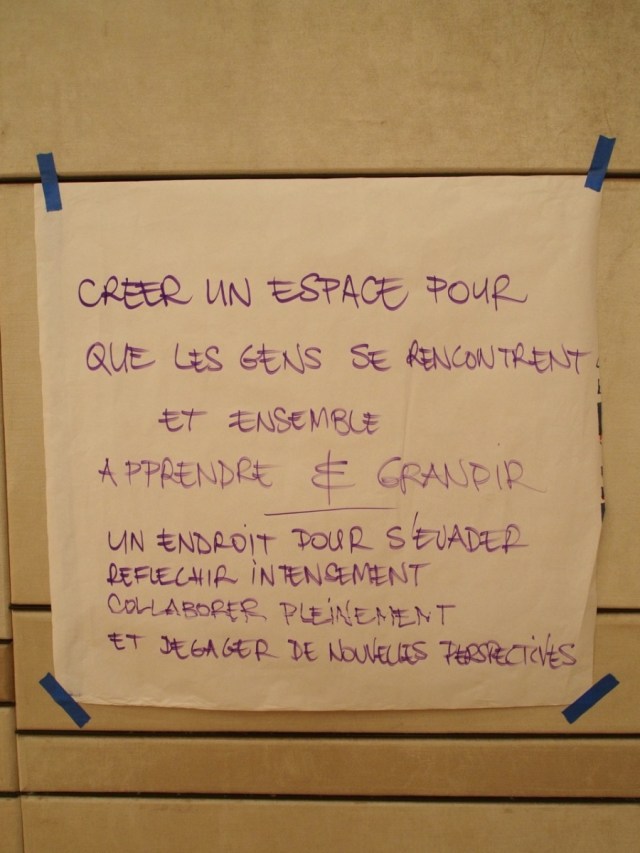 CREER UN ESPACE POUR
QUE LES GENS SE RENCONTRENT
ET ENSEMBLE
APPRENDRE & GRANDIR
UN ENDROIT POUR S'EVADER
REFLECHIR INTENSEMENT
COLLABORER PLEINEMENT
ET DEGAGER DE NOUVELLES PERSPECTIVES